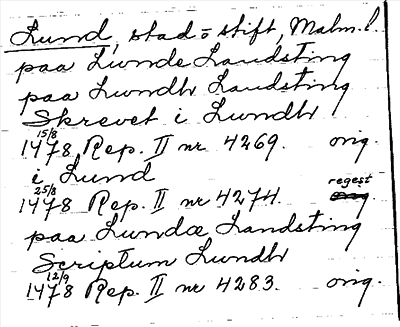 Lund, stad o stift, Malm. l.
paa Lunde Landsting
paa Lundh Landsting
Skrevet i Lundh
15/8
1478 Rep. II nr 4269. orig.
i Lund
25/8 regest
1478 Rep. II nr 4274.
paa Lundæ Landsting
Scriptum Lundh
12/9
1478 Rep. II nr 4283. orig.